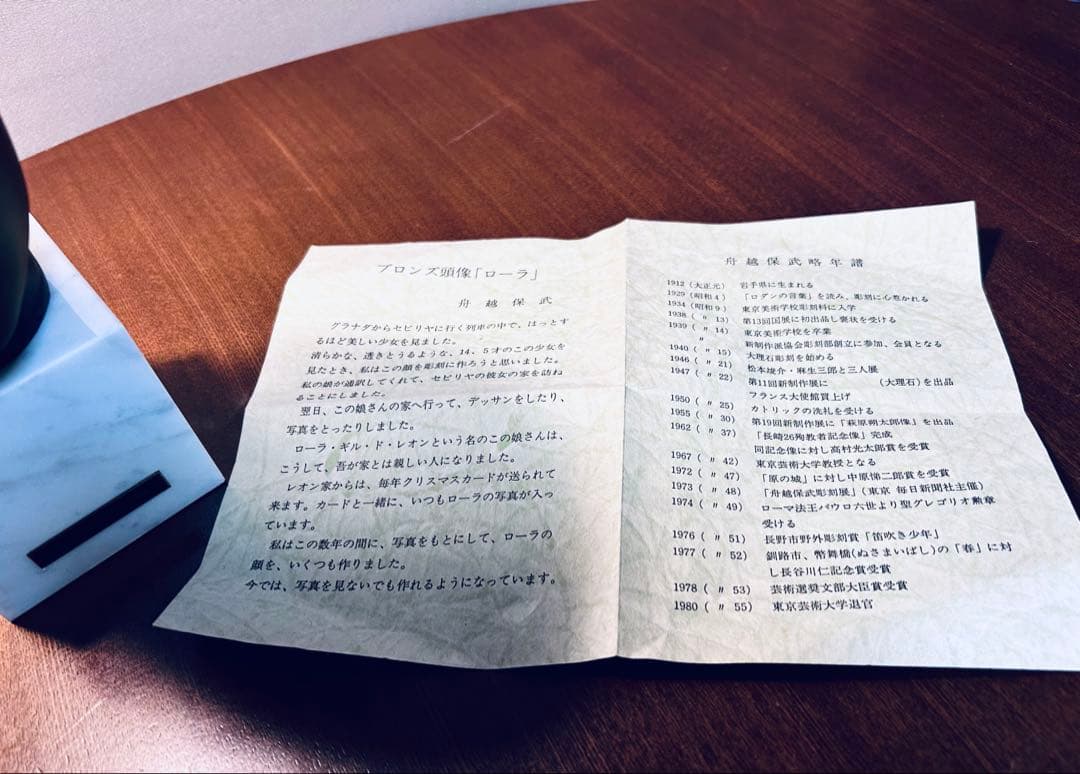 ブロンズ頭像「ローラ」
舟越保武
グラナダからセビリヤに行く列車の中で、はっとす
るほど美しい少女を見ました。
清らかな、透きとうるような、14、5才のこの少女を
見たとき、私はこの顔を彫刻に作ろうと思いました。
私の娘が通訳してくれて、セビリヤの彼女の家を訪ね
ることにしました。
翌日、この娘さんの家へ行って、デッサンをしたり、
写真をとったりしました。
ローラ・ギル・ド・レオンという名のこの娘さんは、
こうして、吾が家とは親しい人になりました。
レオン家からは、毎年クリスマスカードが送られて
来ます。カードと一緒に、いつもローラの写真が入っ
ています。
私はこの数年の間に、写真をもとにして、ローラの
顔を、いくつも作りました。
今では、写真を見ないでも作れるようになっています。
舟越保武略年譜
1912(大正元) 岩手県に生まれる
1929(昭和4) 「ロダンの言葉」を読み、彫刻に心惹かれる
1934(昭和9) 東京美術学校彫刻科に入学
1938(〃13) 第13回国展に初出品し褒状を受ける
1939(〃14) 東京美術学校を卒業
〃 新制作派協会彫刻部創立に参加、会員となる
1940(〃15) 大理石彫刻を始める
1946(〃21) 松本竣介・麻生三郎と三人展
1947(〃22) 第11回新制作展に (大理石)を出品
フランス大使館買上げ
1950(〃25) カトリックの洗礼を受ける
1955(〃30) 第19回新制作展に「萩原朔太郎像」を出品
1962(〃37) 「長崎26殉教者記念像」完成
同記念像に対し高村光太郎賞を受賞
1967(〃42) 東京芸術大学教授となる
1972(〃47) 「原の城」に対し中原悌二郎賞を受賞
1973(〃48) 「舟越保武彫刻展」(東京 毎日新聞社主催)
1974(〃49) ローマ法王パウロ六世より聖グレゴリオ勲章
受ける
1976(〃51) 長野市野外彫刻賞「笛吹き少年」
1977(〃52) 釧路市、幣舞橋(ぬさまいばし)の「春」に対
し長谷川仁記念賞受賞
1978(〃53) 芸術選奨文部大臣賞受賞
1980(〃55) 東京芸術大学退官